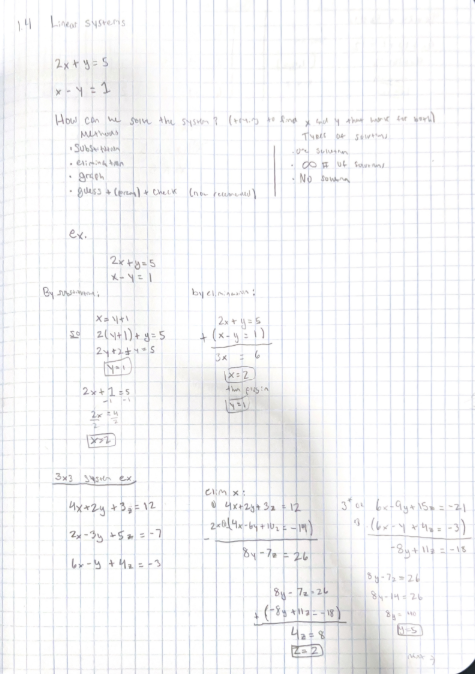 1.4 Linear Systems
2x + y = 5
x - y = 1
How can we solve the system? to find x and y that work for both)
Methods
• Substitution
• elimination
• graph
• guess + + check (not recommended)
Types of solutions
• one solution
• ∞ # of solutions
• No solution
ex.
2x + y = 5
x - y = 1
By substitution:
x = y+1
so 2(y+1) + y = 5
2y+2+y=5
y=1
2x+1=5
-1 -1
2x = 4
2 2
x=2
by elimination:
2x + y = 5
+ (x - y = 1)
3x = 6
x=2
then plug in
y=1
3x3 system ex
4x+2y+3z=12
2x-3y+5z=-7
6x-y+4z=-3
elim x:
① 4x+2y+3z=12
(4x-6y+10z=-14)
8y-7z=26
8y-7z=26
+ (-8y+11z=-18)
4z=8
z=2
6x-9y+15z=-21
(6x-y+4z=-3)
-8y+11z=-18
8y-7z=26
8y-14=26
8y=40
y=5